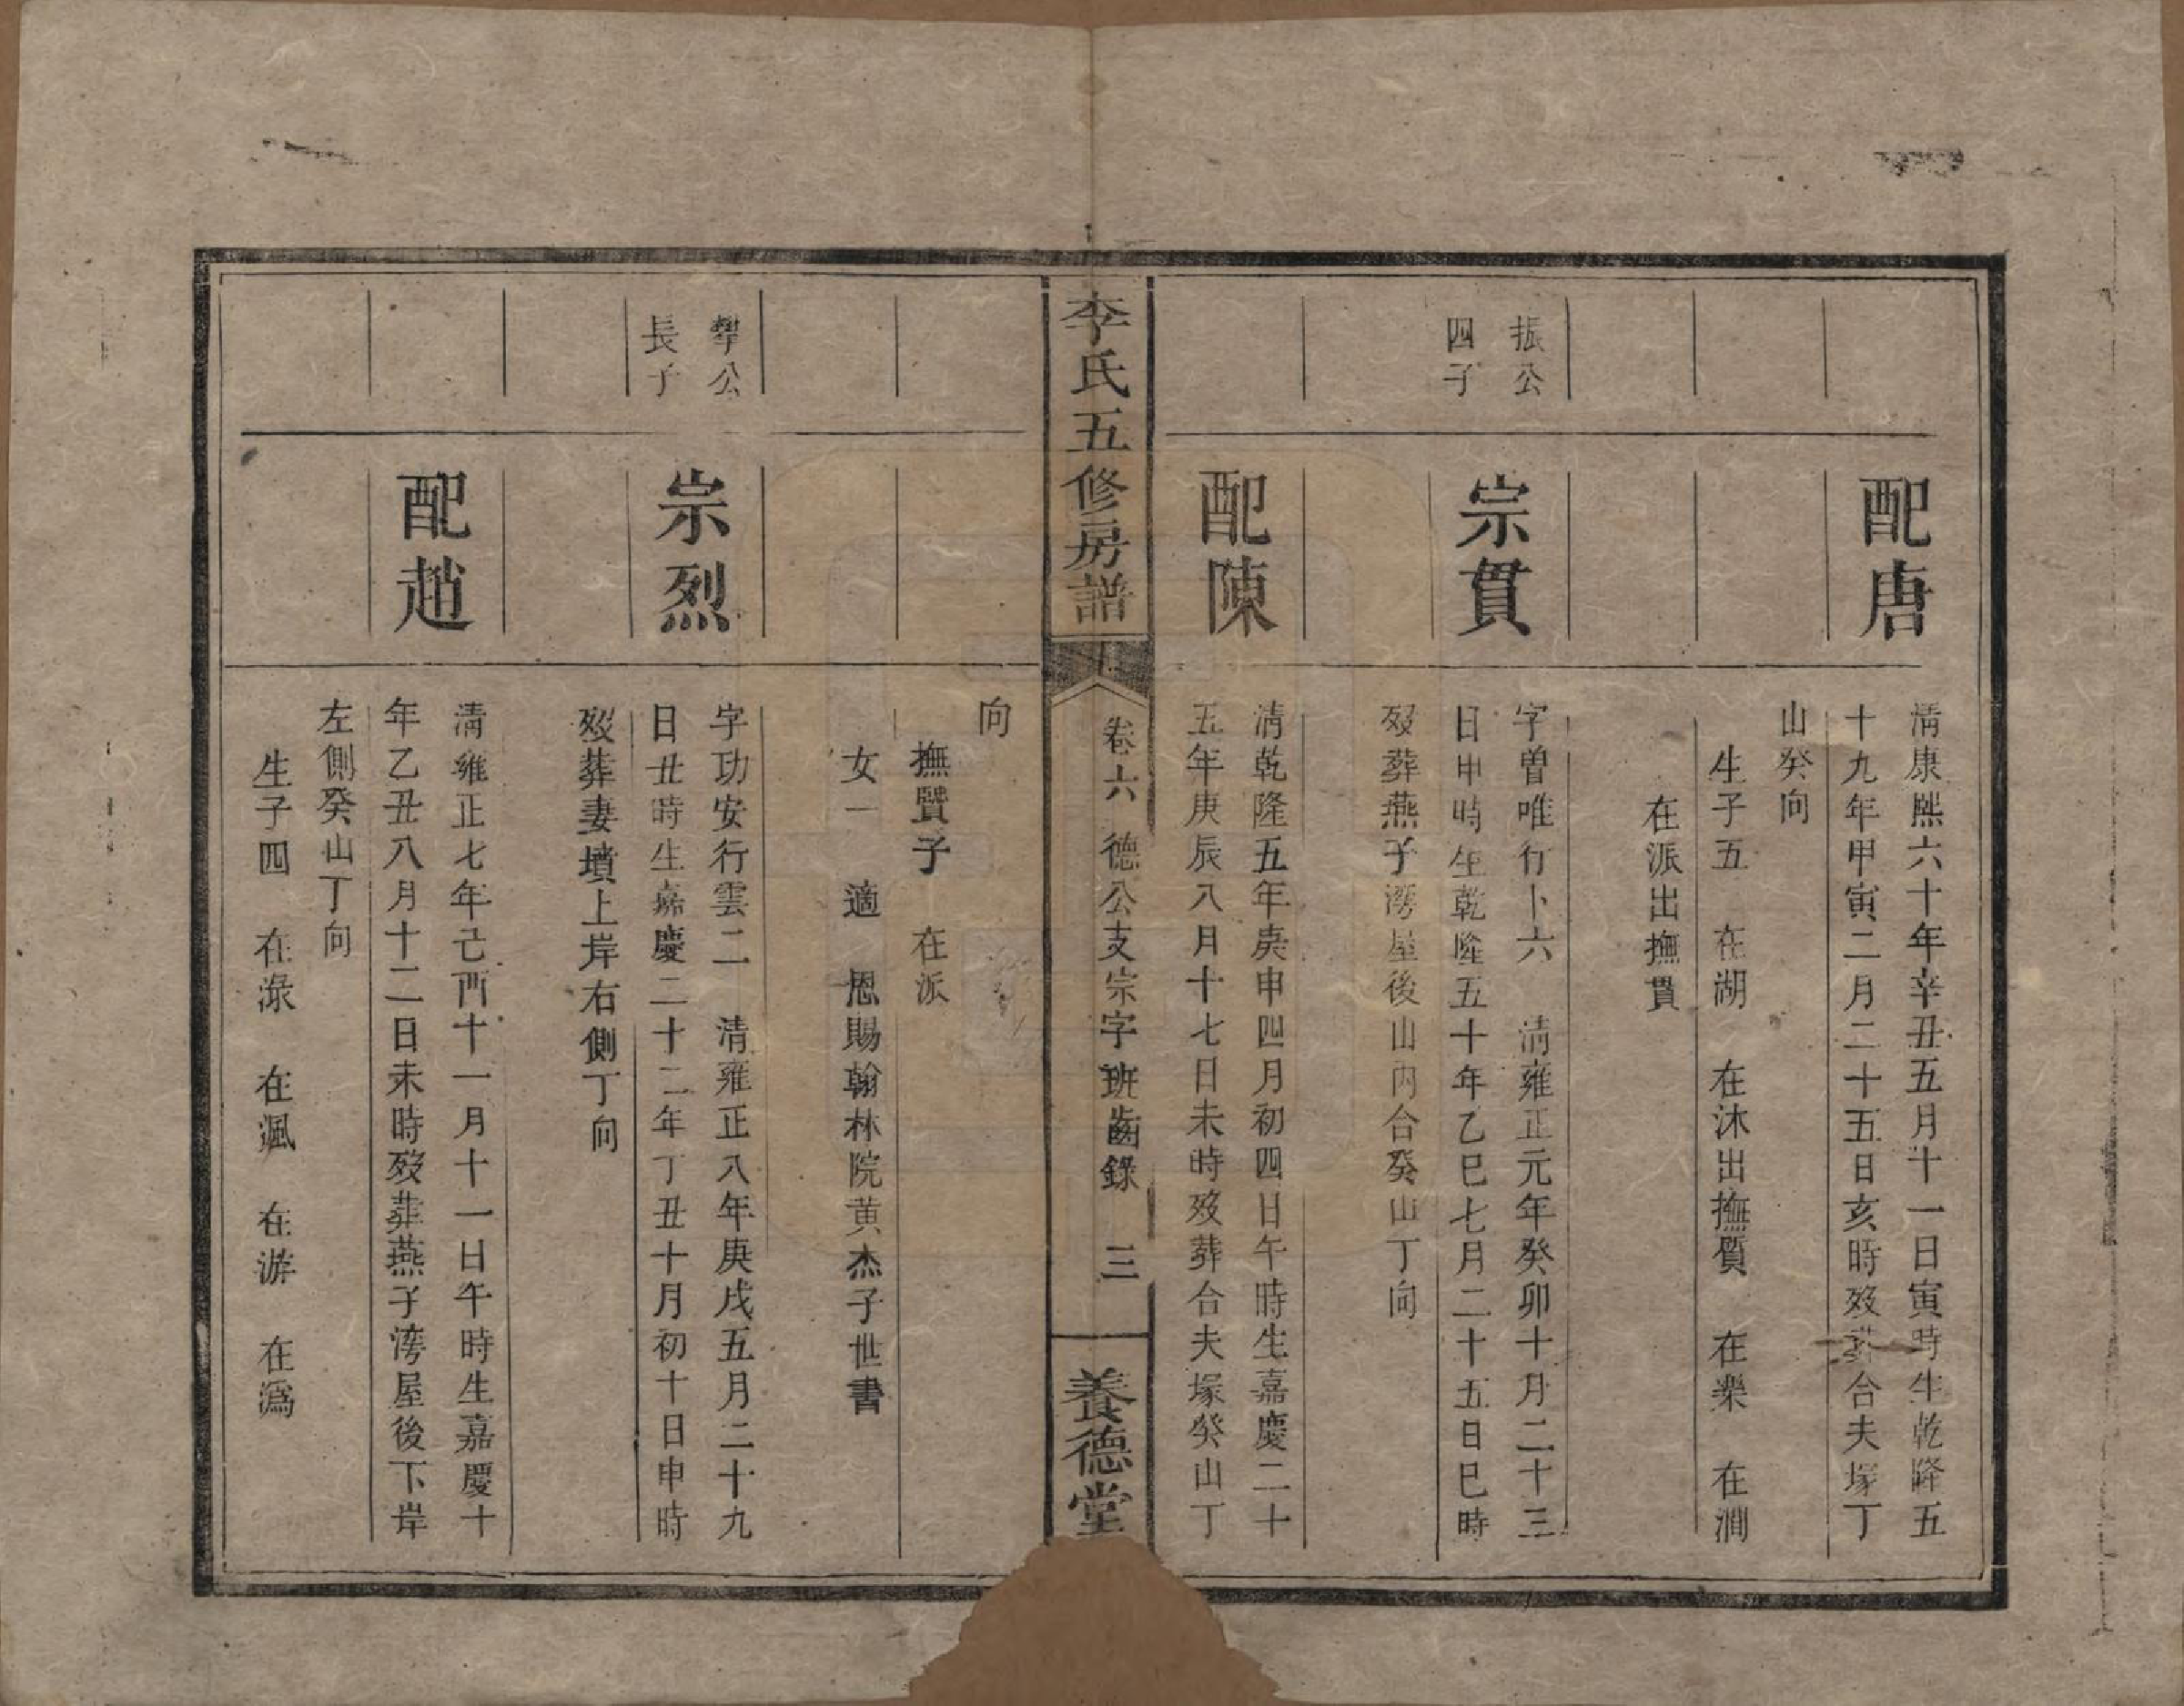 配唐
清康熙六十年辛丑五月十一日寅時生乾隆五
十九年甲寅二月二十五日亥時歿葬合夫塚丁
山癸向
生子五　在湖　在沐出撫質　在樂　在澗
在派出撫貫
振公
四子
宗貫
字曽唯行卜六　清雍正元年癸卯十月二十三
日申時生乾隆五十年乙巳七月二十五日巳時
歿葬燕子灣屋後山內合癸山丁向
配陳
清乾隆五年庚申四月初四日午時生嘉慶二十
五年庚辰八月十七日未時歿葬合夫塚癸山丁
李氏五修房譜
卷六　德公支宗字班齒錄　三
養德堂
向
撫賢子　在派
女一　適　恩賜翰林院黄杰子世書
攀公
長子
宗烈
字功安行雲二　清雍正八年庚戌五月二十九
日丑時生嘉慶二十二年丁丑十月初十日申時
歿葬妻墳上岸右側丁向
配趙
清雍正七年己酉十一月十一日午時生嘉慶十
年乙丑八月十二日未時歿葬燕子灣屋後下岸
左側癸山丁向
生子四　在淥　在渢　在游　在溈